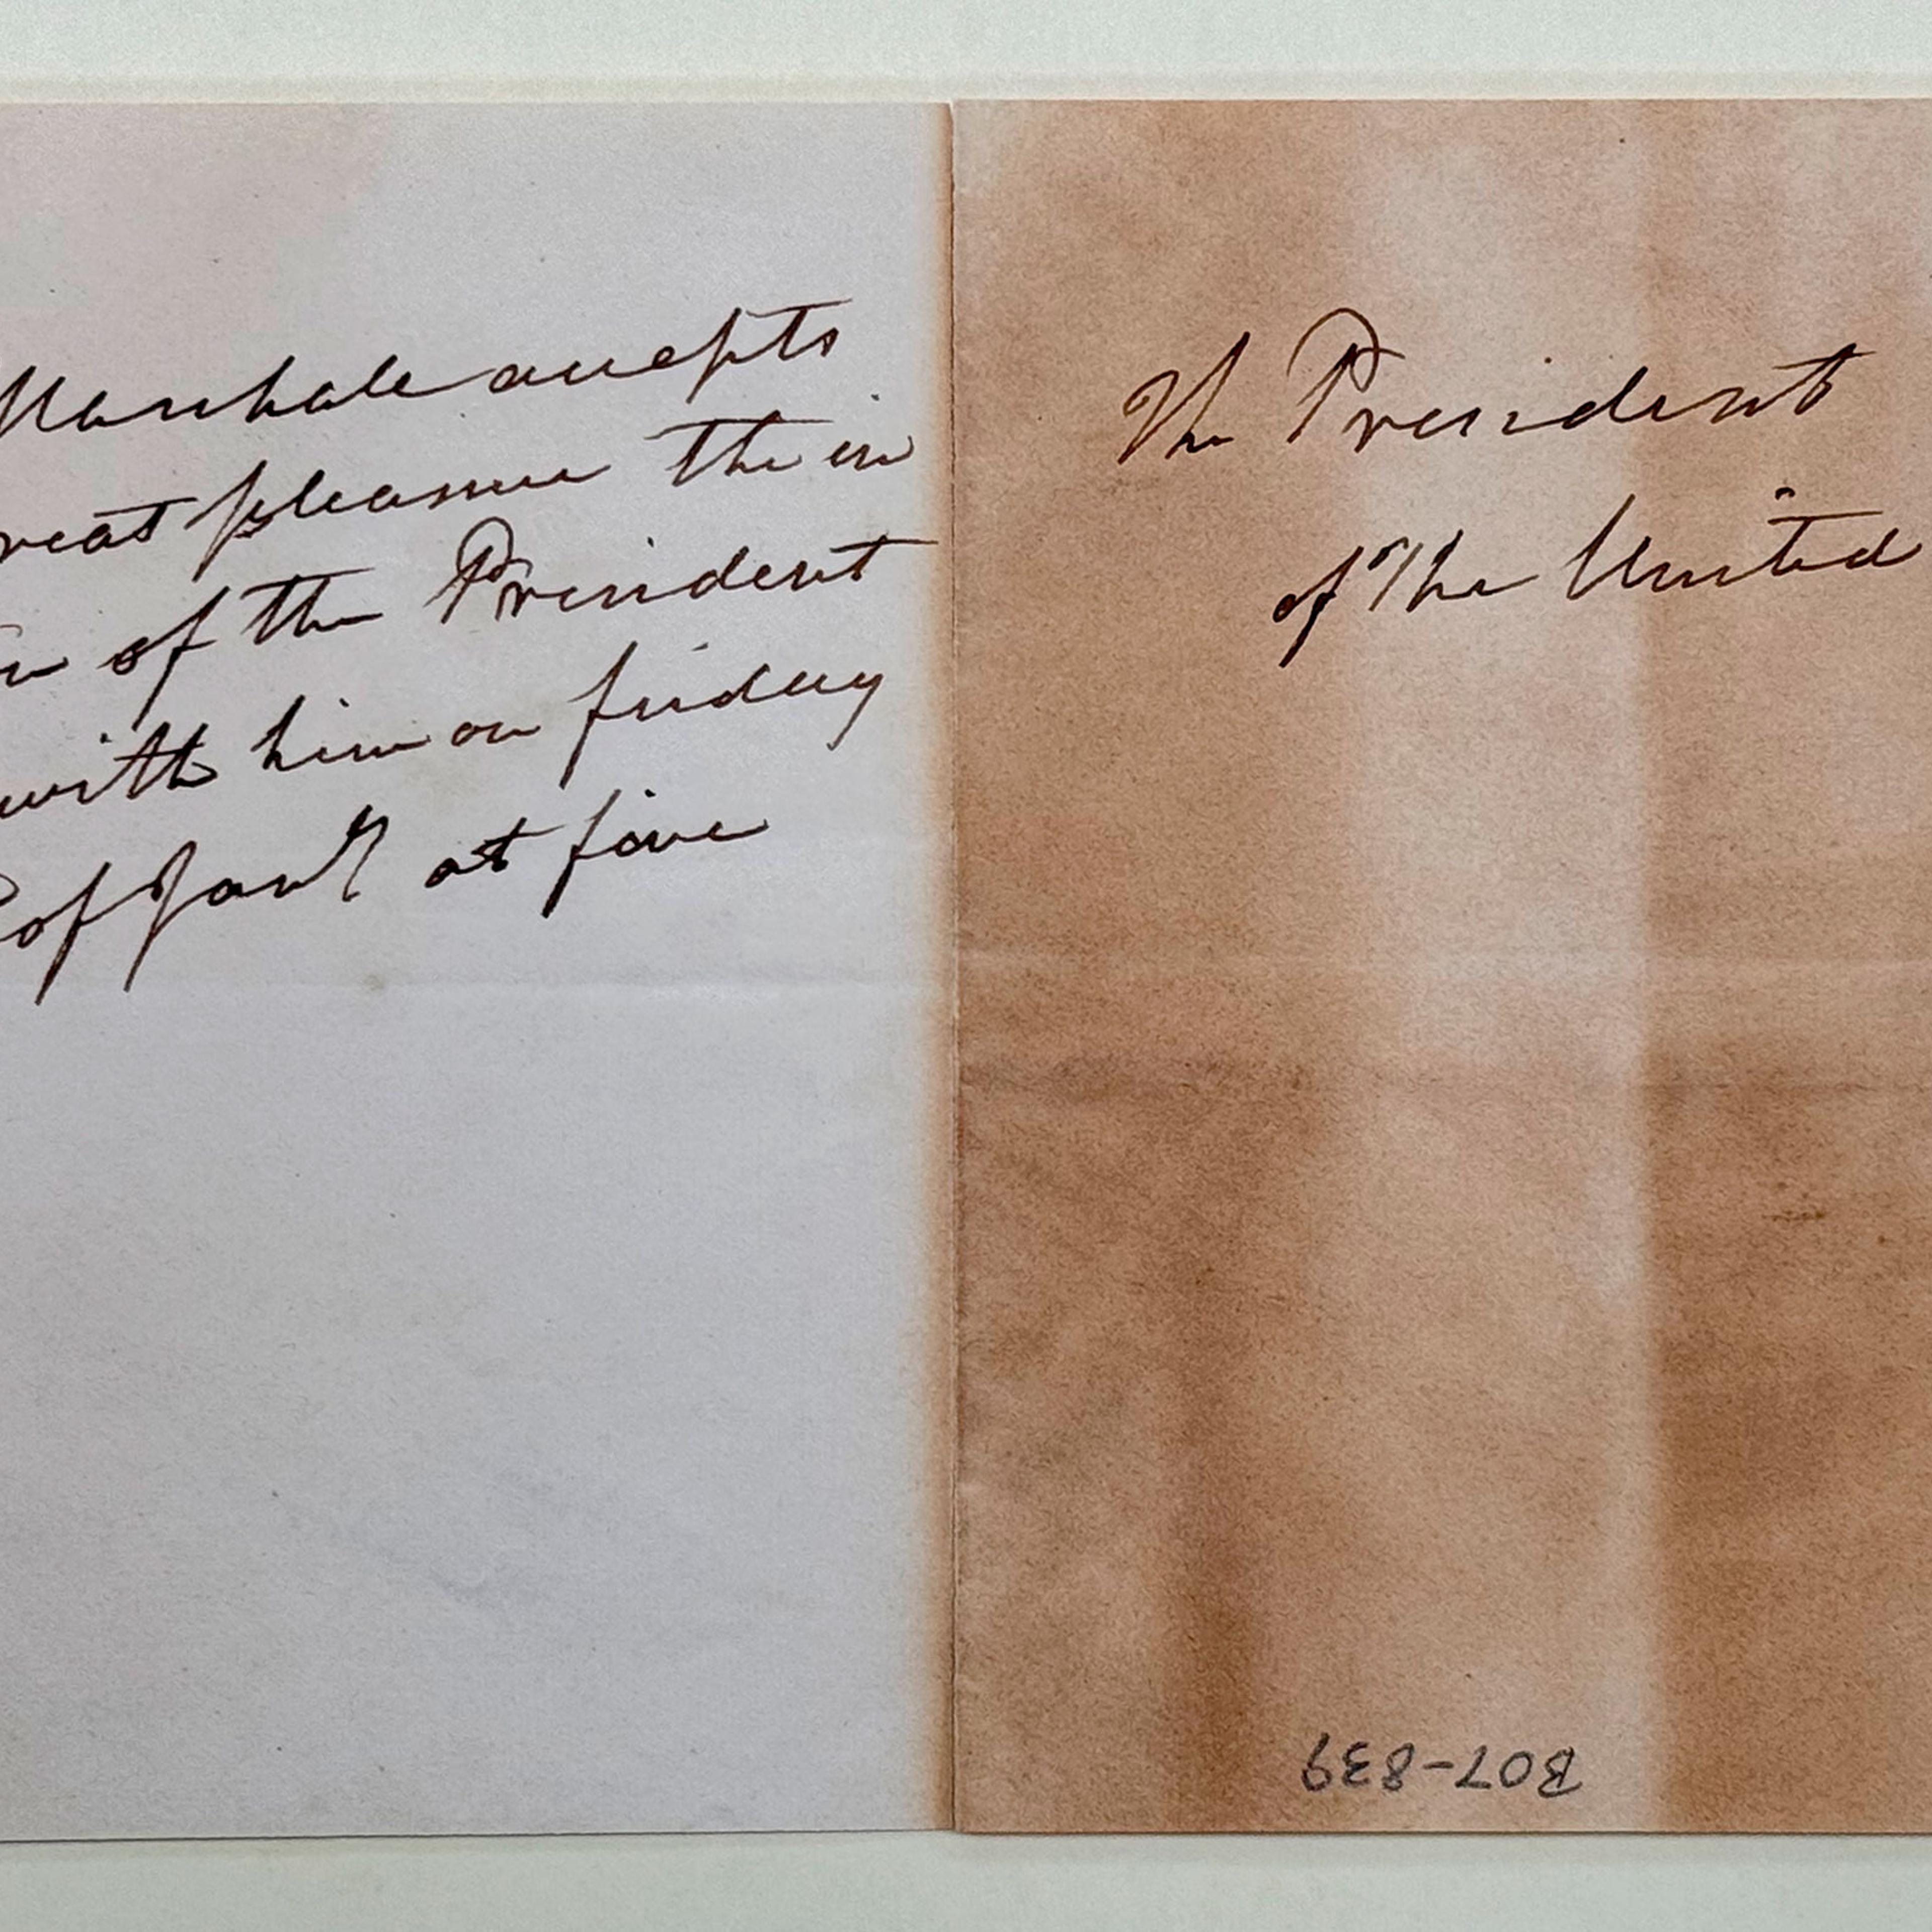 Marshall accepts
reat pleasure the in
n of the President
with him on friday
of Jany at five
The President
of the United
B07-839